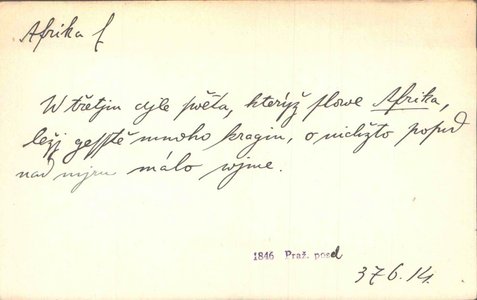 Afrika f
W třetjm djle swěta, kterýž slowe Afrika,
ležj gessstě mnoho kragin, o nichžto posud
nad mjru málo wjme.
1846 Praž. posel
376.14.